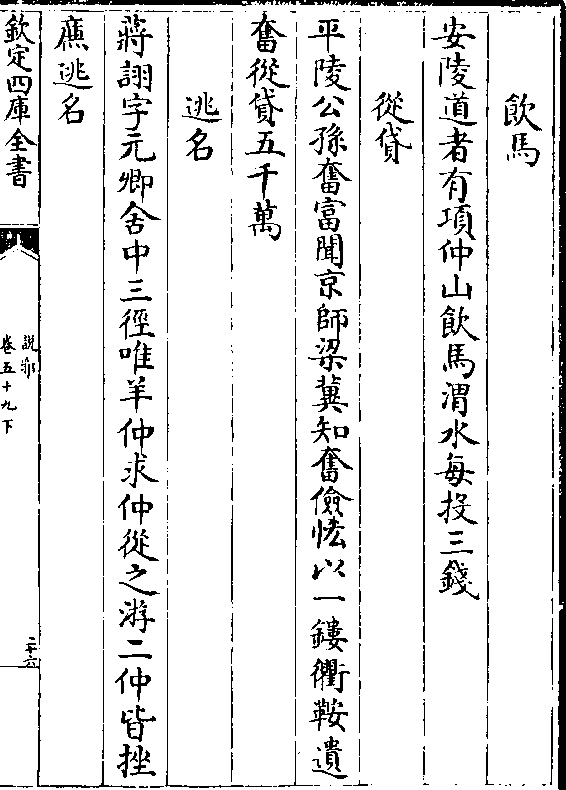 飲馬
安陵道者有項仲山飲馬渭水每投三錢
從貸
平陵公孫奮富聞京師梁冀知奮儉恡以一鏤衢鞍遺
奮從貸五千萬
逃名
蔣詡字元卿舍中三徑唯羊仲求仲從之游二仲皆挫
亷逃名
欽定四庫全書
說郛
卷五十九下
二十六